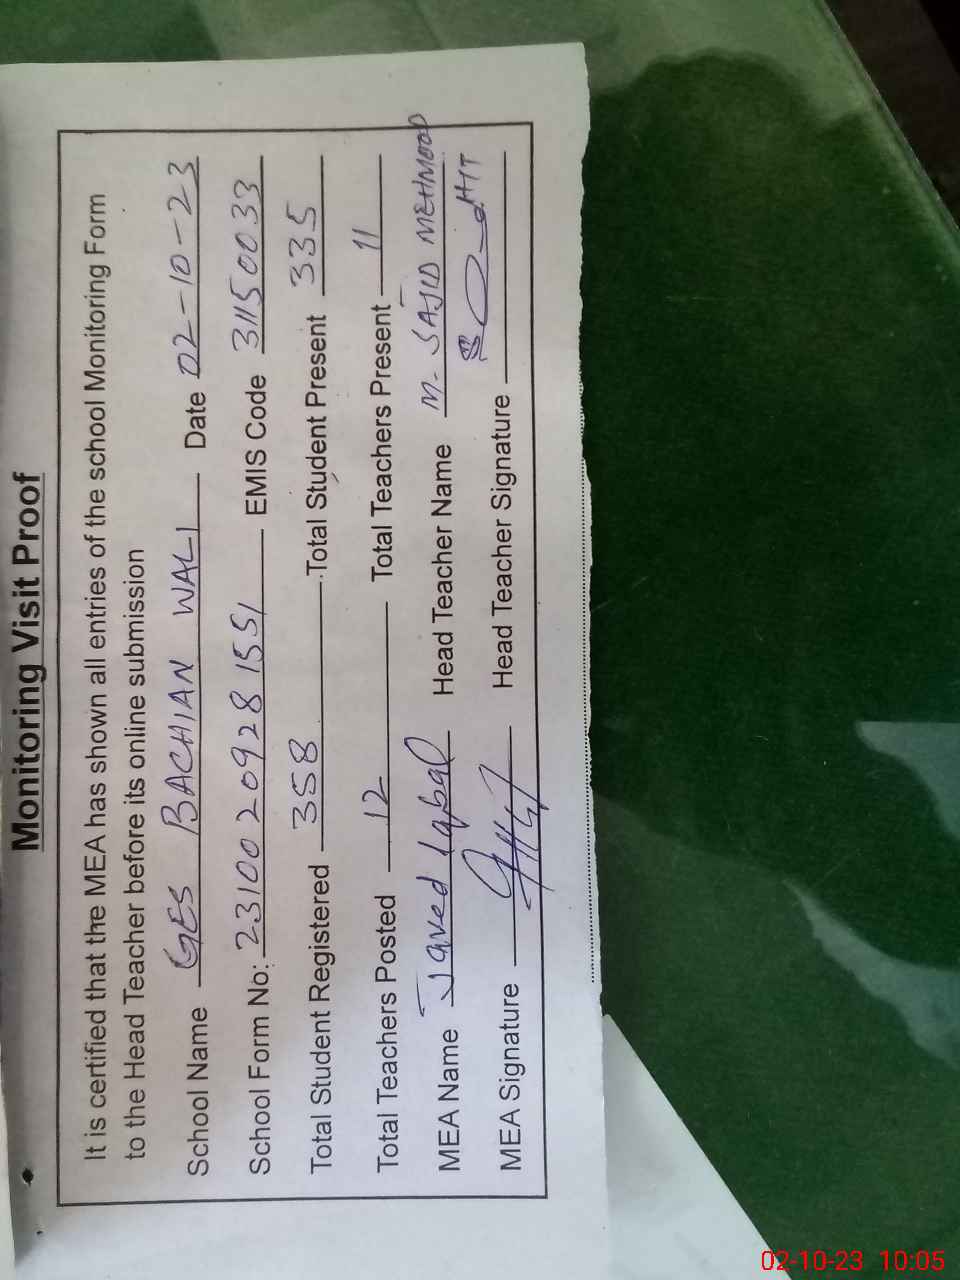 Monitoring Visit Proof
It is certified that the MEA has shown all entries of the school Monitoring Form
to the Head Teacher before its online submission
School Name GES BACHIAN WALI Date 02-10-23
School Form No: 23100209281551 EMIS Code 31150033
Total Student Registered 358 Total Student Present 335
Total Teachers Posted 12 Total Teachers Present 11
MEA Name Javed Iqbal Head Teacher Name M. SAJID MEHMOOD
MEA Signature Head Teacher Signature
02-10-23 10:05